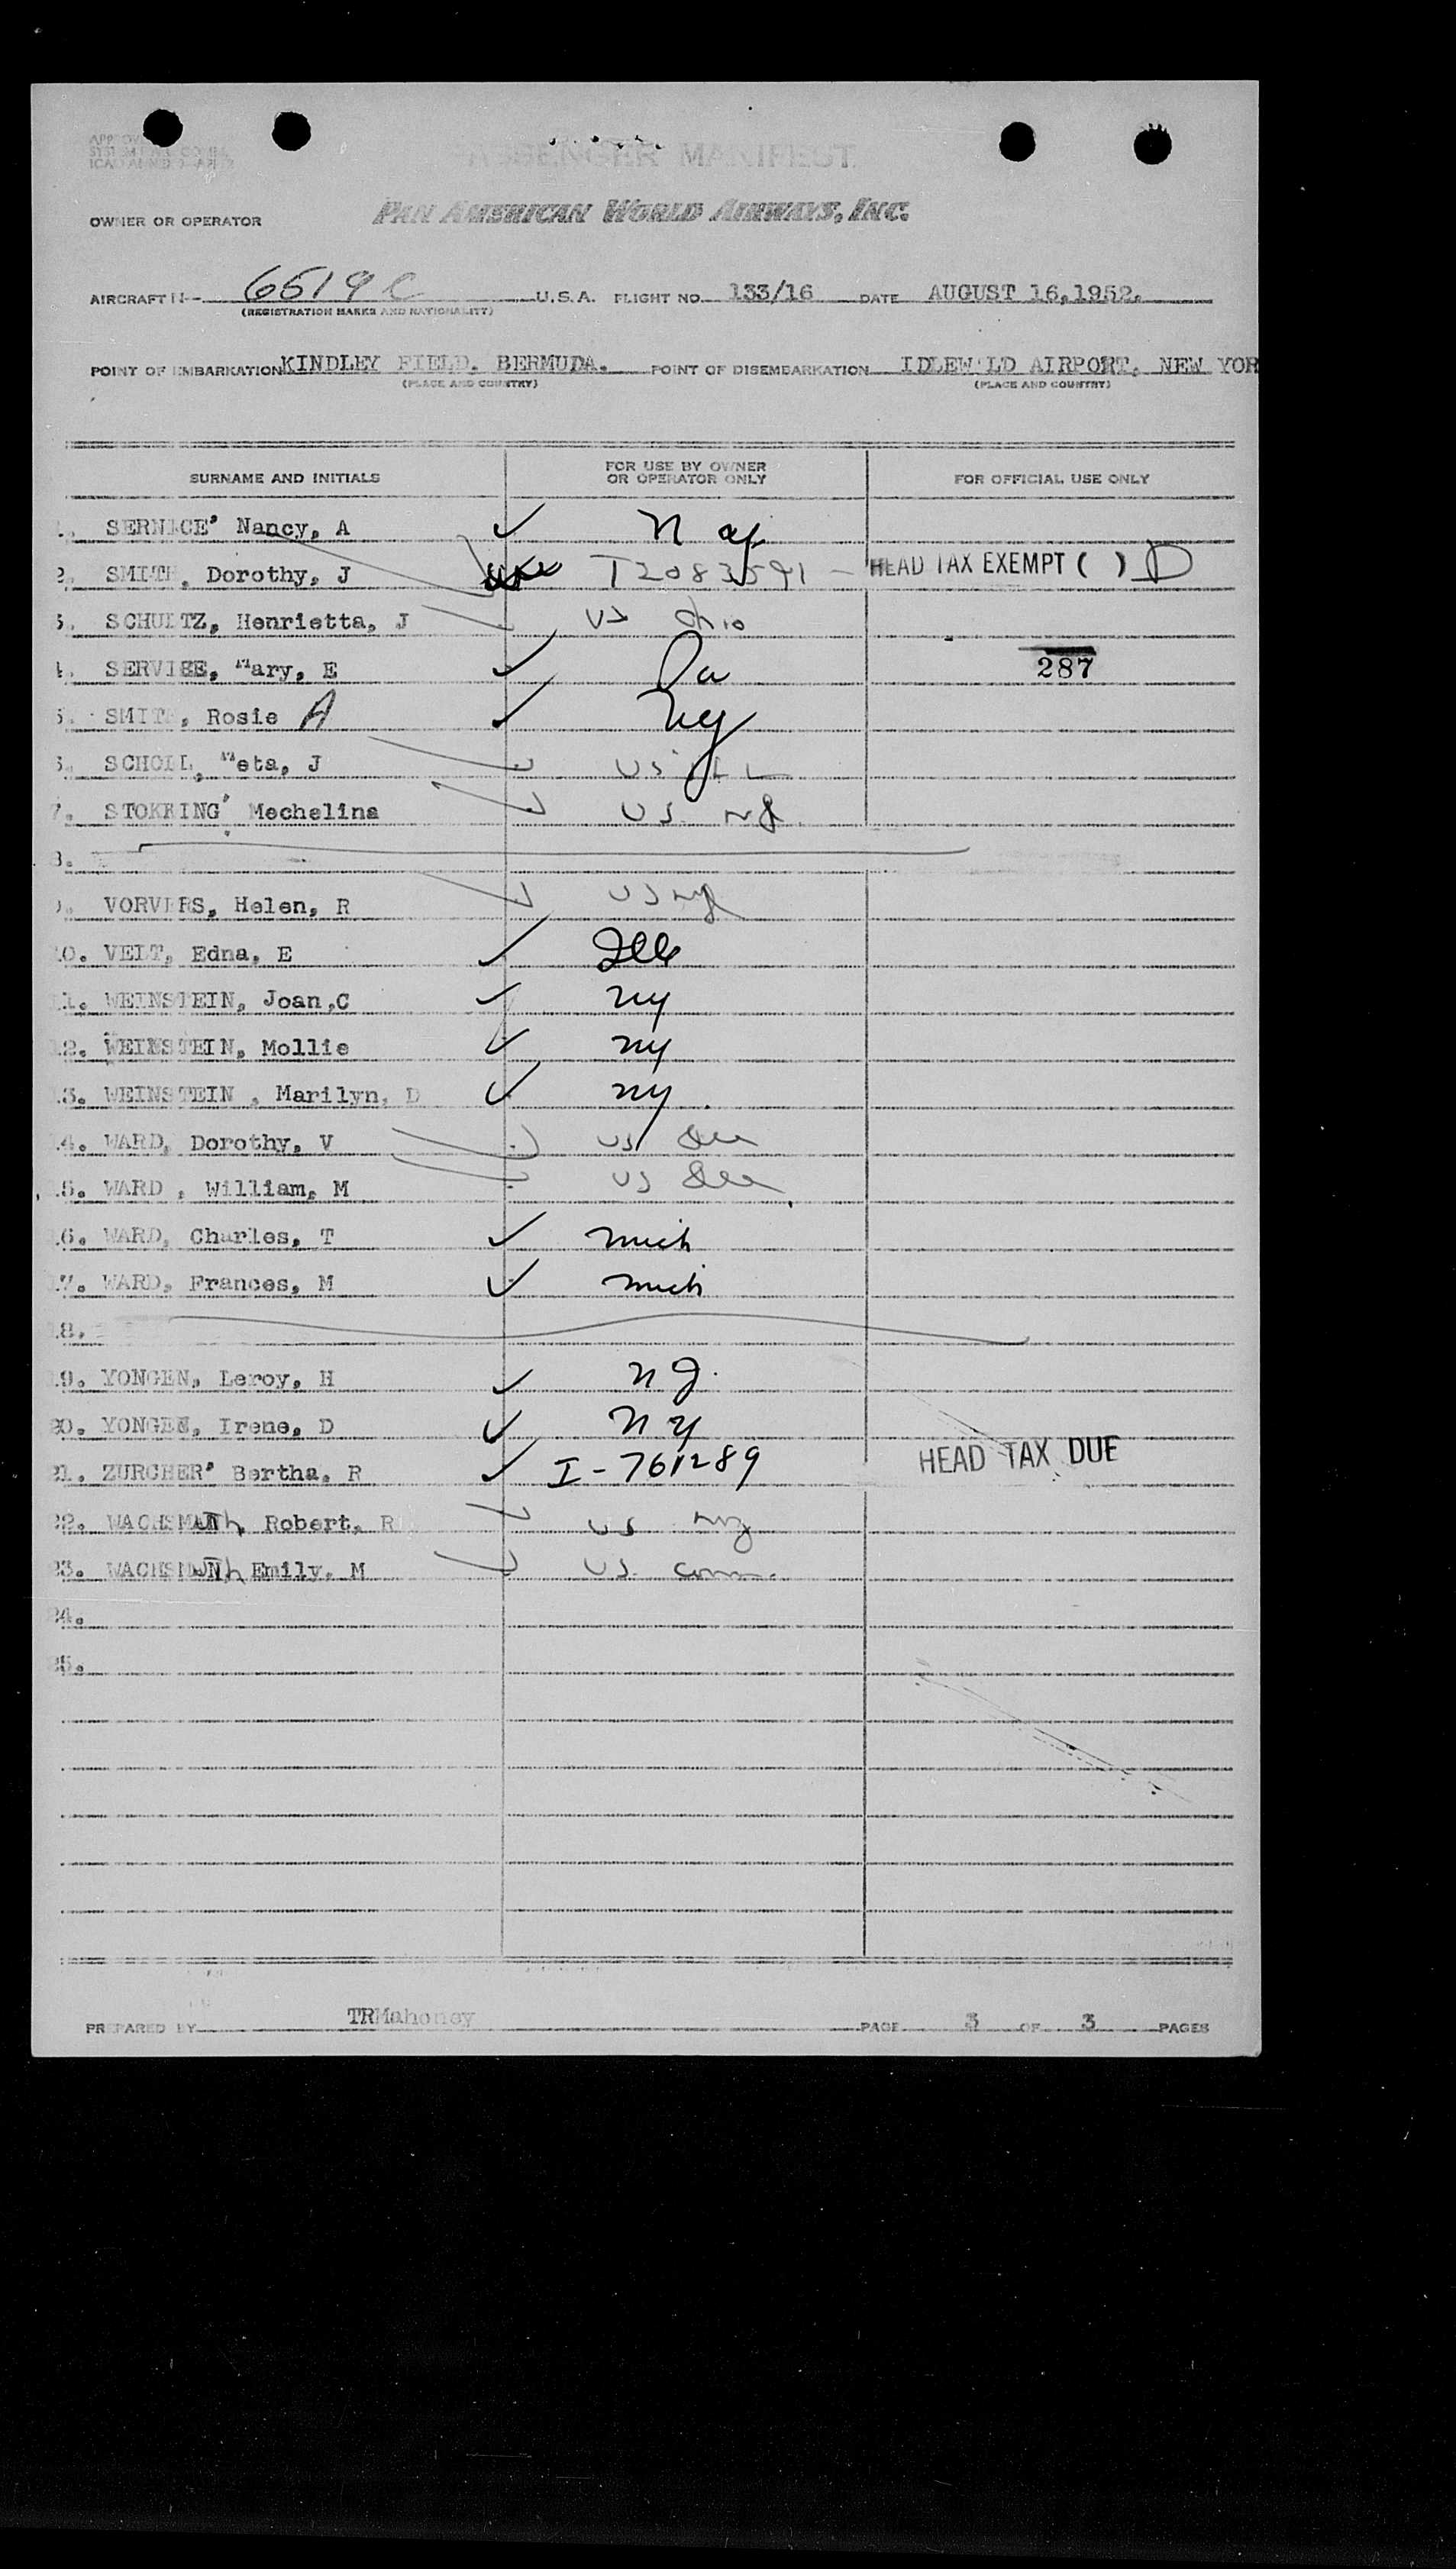 PASSENGER MANIFEST
OWNER OR OPERATOR PAN AMERICAN WORLD AIRWAYS, INC.
AIRCRAFT N- 6519C U.S.A. FLIGHT NO. 133/16 DATE AUGUST 16, 1952.
(REGISTRATION MARKS AND NATIONALITY)
POINT OF EMBARKATION KINDLEY FIELD. BERMUDA. POINT OF DISEMBARKATION IDLEWILD AIRPORT, NEW YOR
(PLACE AND COUNTRY) (PLACE AND COUNTRY)
SURNAME AND INITIALS FOR USE BY OWNER OR OPERATOR ONLY FOR OFFICIAL USE ONLY
1. Nancy, A ✓ N
2. SMITH, Dorothy, J T2083591 - HEAD TAX EXEMPT ( ) D
3. SCHULTZ, Henrietta, J US Ohio
4. Mary, E ✓ Pa 287
5. SMITH, Rosie A ✓ NY
6. SCHOLL, Meta, J US ILL
7. STOKKING' Mechelina US NJ
8.
9. VORVERS, Helen, R US
10. VEIT, Edna, E ✓ Ill
11. WEINSTEIN, Joan,C ✓ NY
12. WEINSTEIN, Mollie ✓ NY
13. WEINSTEIN, Marilyn, D ✓ NY.
14. WARD, Dorothy, V US
15. WARD, William, M US
16. WARD, Charles, T ✓ Mich
17. WARD, Frances, M ✓ Mich
18.
19. YONGEN, Leroy, H ✓ N J.
20. YONGEN, Irene, D ✓ N Y
21. ZURCHER' Bertha, R ✓ I-761289 HEAD TAX DUE
22. WACHSMUTH, Robert, R US
23. WACHSMUTH, Emily, M US Conn.
24.
25.
PREPARED BY TRMahoney PAGE 3 OF 3 PAGES